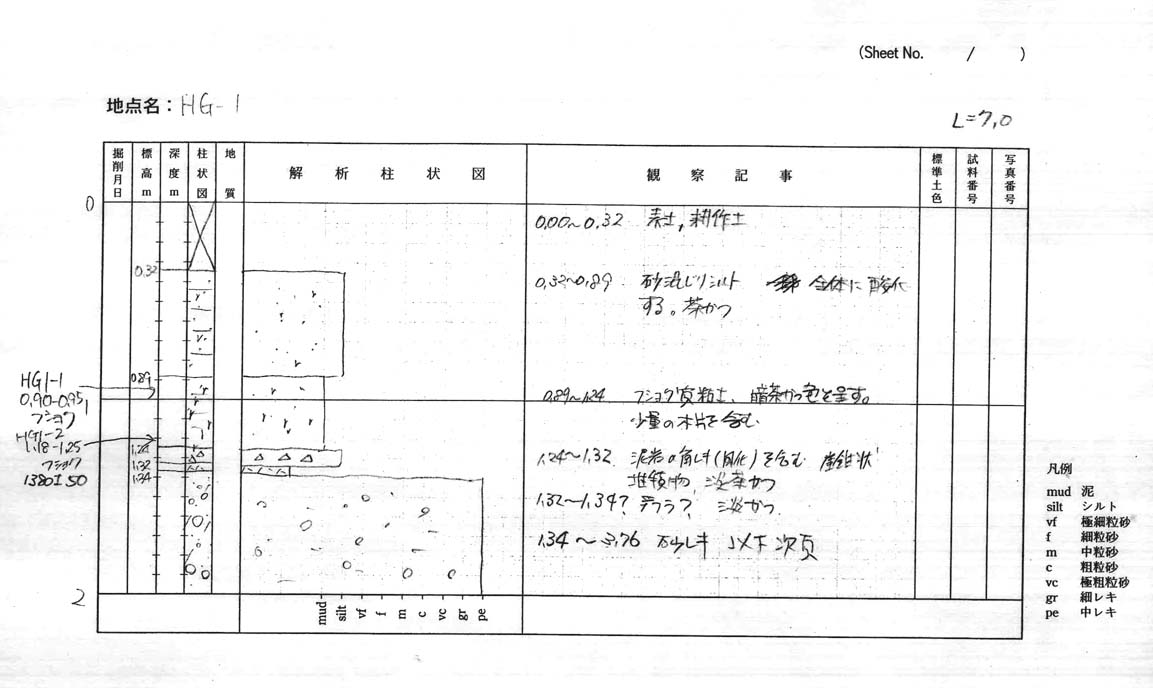 (Sheet No. / )
地点名：HG-1
L=7.0
掘削月日 標高m 深度m 柱状図 地質 解析柱状図 観察記事 標準土色 試料番号 写真番号
0
0.00～0.32 表土，耕作土
0.32
0.32～0.89 砂混じりシルト 全体に酸化
する。茶かつ
0.89
HG1-1
0.90-0.95
フショク
1
0.89～1.24 フショク質粘土、暗茶かつ色を呈す。
少量の木片を含む
HG1-2
1.18-1.25
フショク
1380±50
1.24
1.32
1.34
1.24～1.32 泥岩の角レキ(風化)を含む 崖錐状
堆積物 淡茶かつ
1.32～1.34? テフラ? 淡かつ
1.34～3.76 砂レキ 以下次頁
2
mud silt vf f m c vc gr pe
凡例
mud 泥
silt シルト
vf 極細粒砂
f 細粒砂
m 中粒砂
c 粗粒砂
vc 極粗粒砂
gr 細レキ
pe 中レキ